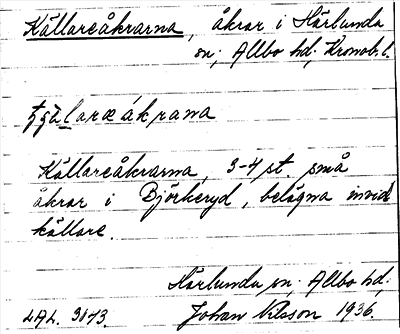 Källareåkrarna, åkrar i Härlunda
sn; Allbo hd; Kronob. l.
Källareåkrarna, 3-4 st. små
åkrar i Björkeryd, belägna invid
källare.
Härlunda sn; Allbo hd;
LAL. 3173. Johan Nilsson 1936.